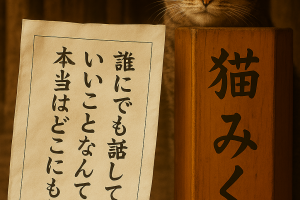 猫みく
誰にでも話して
いいことなんて
本当はどこにも